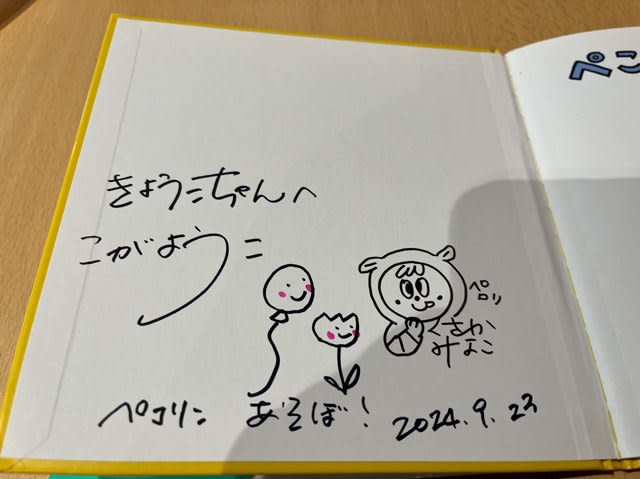 きょうこちゃんへ
こがようこ
ペロリ
くさか
みなこ
ペコリン あそぼ! 2024.9.23
ぺこ